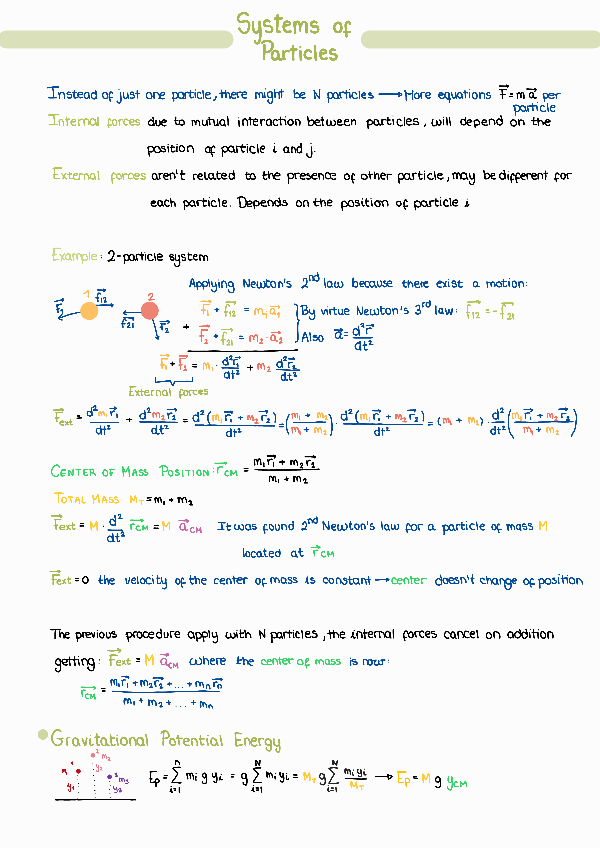 Systems of
Particles
Instead of just one particle, there might be N particles ⟶ More equations F⃗ = m a⃗ per
particle
Internal forces due to mutual interaction between particles, will depend on the
position of particle i and j.
External forces aren't related to the presence of other particle, may be different for
each particle. Depends on the position of particle i
Example: 2-particle system
Applying Newton's 2nd law because there exist a motion:
1 f⃗12 F⃗1
2 f⃗21 F⃗2
F⃗1 + f⃗12 = m1 a⃗1
By virtue Newton's 3rd law: f⃗12 = -f⃗21
+ F⃗2 + f⃗21 = m2 · a⃗2
Also a⃗ = d²r⃗/dt²
F⃗1 + F⃗2 = m1 · d²r⃗1/dt² + m2 d²r⃗2/dt²
External forces
F⃗ext = d²m1r⃗1/dt² + d²m2r⃗2/dt² = d²(m1r⃗1 + m2r⃗2)/dt² = (m1 + m2/m1 + m2) · d²(m1r⃗1 + m2r⃗2)/dt² = (m1 + m2) · d²/dt² (m1r⃗1 + m2r⃗2/m1 + m2)
CENTER OF MASS POSITION: r⃗CM = m1r⃗1 + m2r⃗2/m1 + m2
TOTAL MASS MT = m1 + m2
F⃗ext = M · d²/dt² r⃗CM = M a⃗CM It was found 2nd Newton's law for a particle of mass M
located at r⃗CM
F⃗ext = 0 the velocity of the center of mass is constant → center doesn't change of position
The previous procedure apply with N particles, the internal forces cancel on addition
getting: F⃗ext = M a⃗CM where the center of mass is now:
r⃗CM = m1r⃗1 + m2r⃗2 + ... + mnr⃗n/m1 + m2 + ... + mn
Gravitational Potential Energy
y1 2 m2 y2 3 m3 y3
Ep = n∑i=1 mi g yi = g N∑i=1 mi yi = MT g N∑i=1 mi yi/MT → Ep = M g yCM